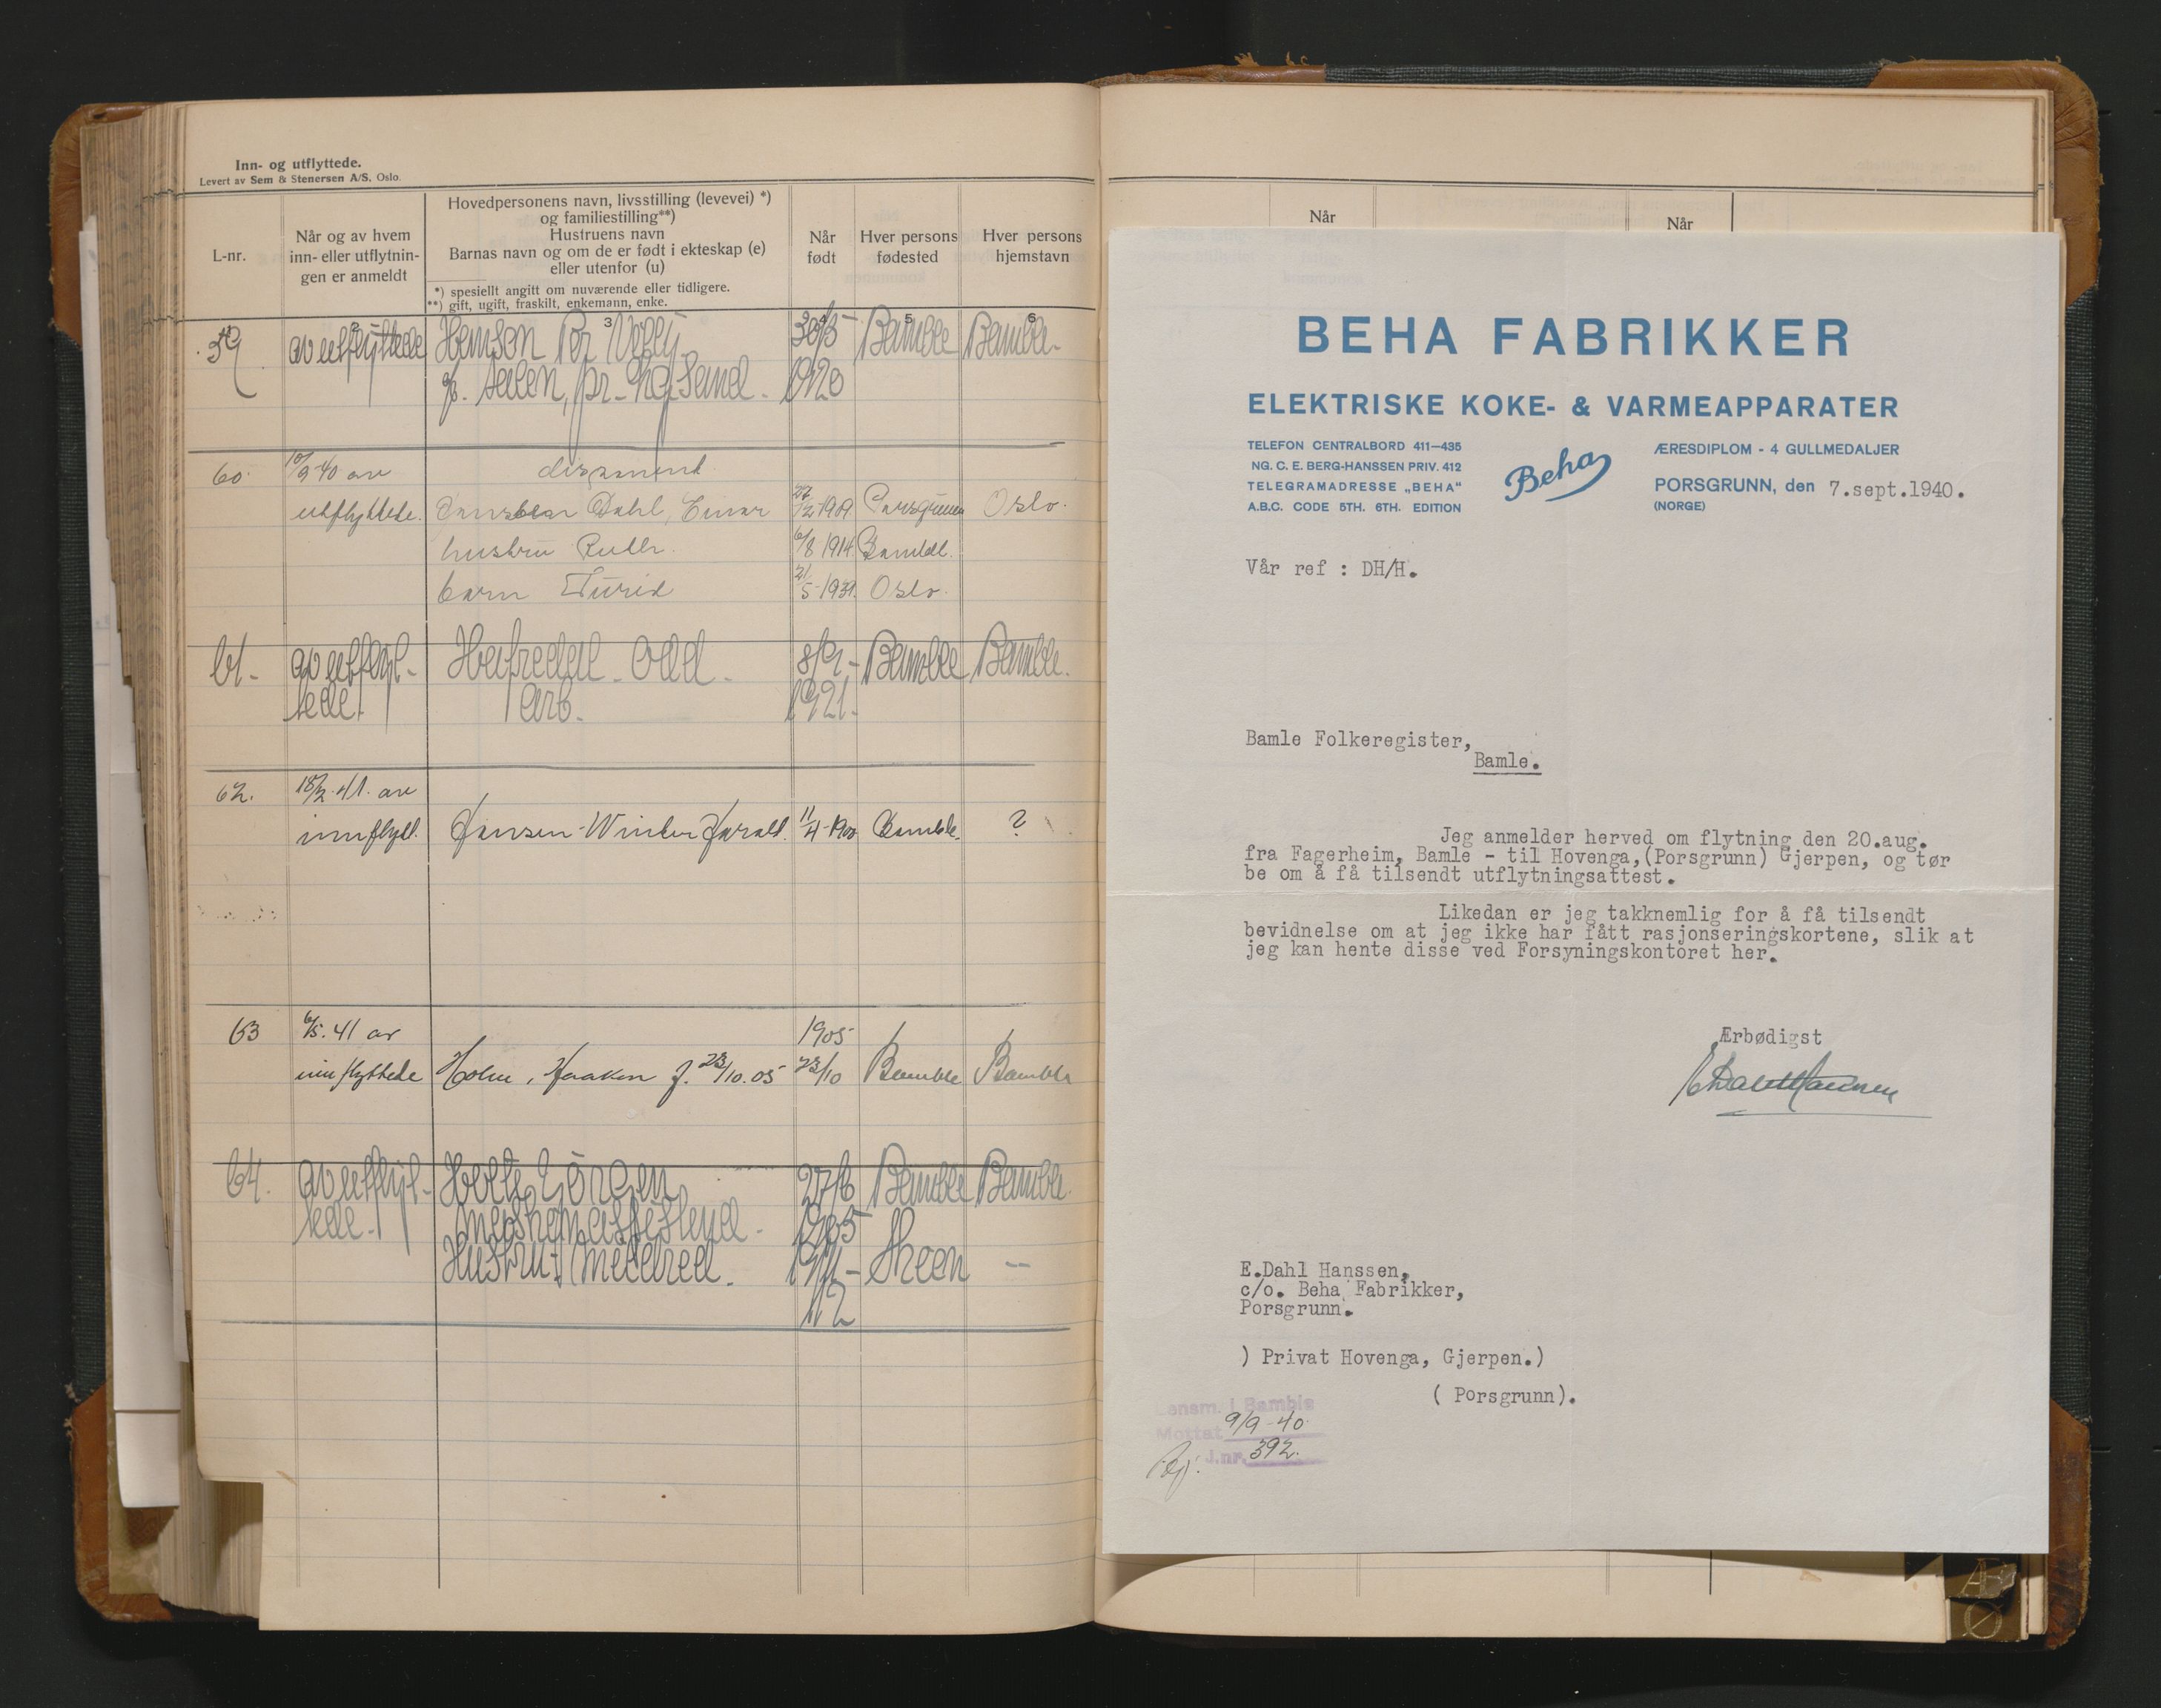 Inn- og utflyttede.
Levert av Sem & Stenersen A/S. Oslo.
L-nr.
Når og av hvem
inn- eller utflytnin-
gen er anmeldt
Hovedpersonens navn, livsstilling (levevei) *)
og familiestilling**)
Hustruens navn
Barnas navn og om de er født i ekteskap (e)
eller utenfor (u)
*) spesiellt angitt om nuværende eller tidligere.
**) gift, ugift, fraskilt, enkemann, enke.
Når
født
Hver persons
fødested
Hver persons
hjemstavn
3 4 5 6
59 av utflyttede Per 30/5 Bamble Bamble.
1920
60. 10/9-40 av
utflyttede. Dahl, Einar 1909 Porsgrunn Oslo.
hustru Ruth. 6/8 1914. Bamble
barn Turid 21/5-1939. Oslo.
61. av utflyt- Odd. 8/2- Bamble Bamble.
tede. Arb. 1921.
62. 18/2.41. av
innflytt. Hansen-Winter Harald. 11/4-1900 Bamble. ?
63 6/5.41 av 1905
innflyttede Holm, Haakon J. 23/10.05 23/10 Bamble Bamble
64. av utflyt- Holte Jörgen 27/6 Bamble Bamble.
tede. 1905
Hustru: 1911- Skeen -
Når
Når
BEHA FABRIKKER
ELEKTRISKE KOKE- & VARMEAPPARATER
TELEFON CENTRALBORD 411—435
NG. C. E. BERG-HANSSEN PRIV. 412
TELEGRAMADRESSE „BEHA"
A.B.C. CODE 5TH. 6TH. EDITION
Beha
ÆRESDIPLOM - 4 GULLMEDALJER
PORSGRUNN, den 7.sept.1940.
(NORGE)
Vår ref : DH/H.
Bamle Folkeregister,
Bamle.
Jeg anmelder herved om flytning den 20.aug.
fra Fagerheim, Bamle - til Hovenga,(Porsgrunn) Gjerpen, og tør
be om å få tilsendt utflytningsattest.
Likedan er jeg takknemlig for å få tilsendt
bevidnelse om at jeg ikke har fått rasjonseringskortene, slik at
jeg kan hente disse ved Forsyningskontoret her.
Ærbødigst
E Dahl Hanssen
E.Dahl Hanssen,
c/o. Beha Fabrikker,
Porsgrunn.
) Privat Hovenga, Gjerpen.)
( Porsgrunn).
Lensm. i Bamble
Mottat 9/9-40.
J.nr. 392.
Æ
Ø